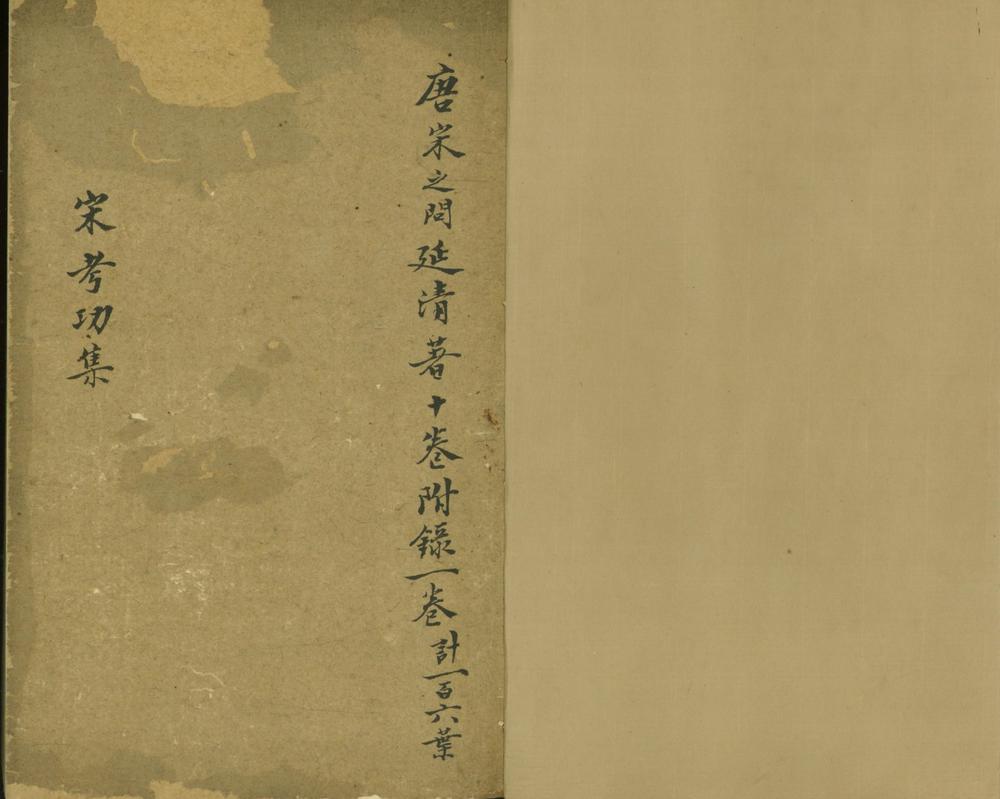 唐宋之問延清著十卷附錄一卷計一百六葉
宋考功集